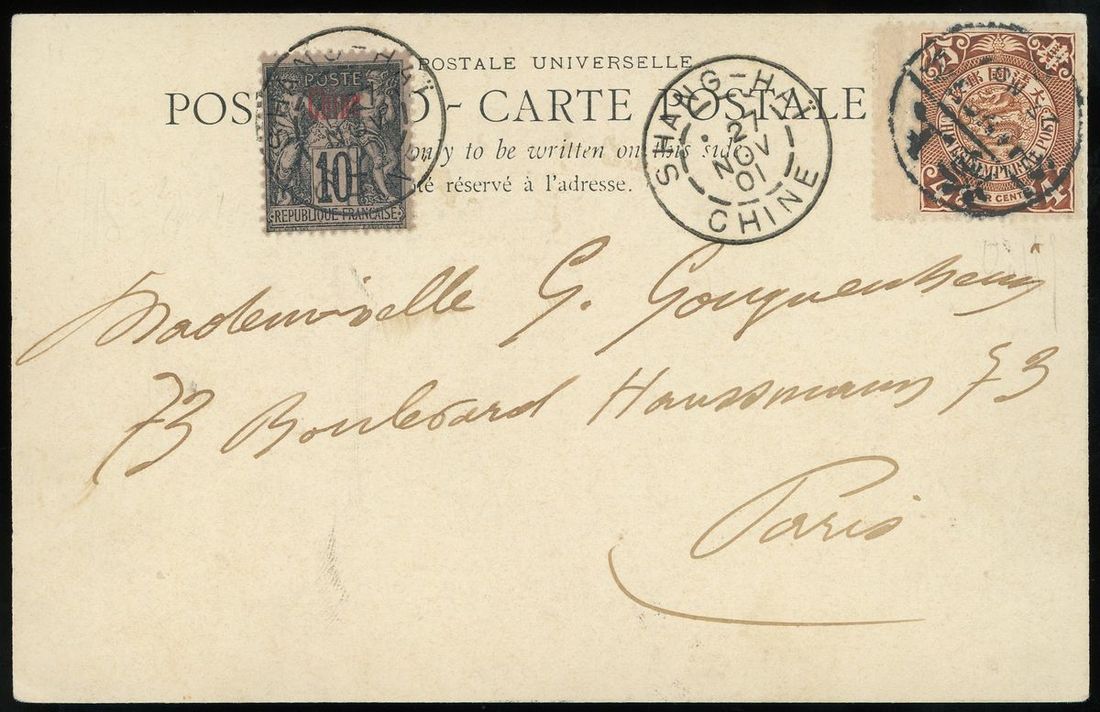 POSTALE UNIVERSELLE
POS D - CARTE POSTALE
only to be written on this side
té réservé à l'adresse.
POSTE
Chine
10
RÉPUBLIQUE FRANÇAISE
SHANG-HAÏ
SHANG-HAÏ
27
NOV
01
CHINE
大清國郵政
CH IMPERIAL POST
4 4
R CENT
Mademoiselle G. Gougenheim
73 Boulevard Haussmann 73
Paris